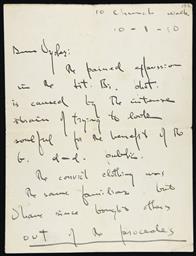 10 Church Walk
10-8-50
Dear Vyden:
The pained expression
in the Lit. is. dst.
is caused by the intense
strain of trying to look
soulful for the benefit of the
G. d - d public.
The convict clothing was
the same familiar but
I have since bought others
out of the proceeds